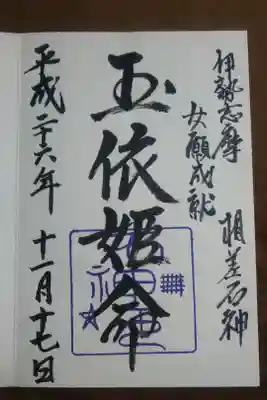 伊勢志摩 相差石神
女願成就
玉依姫命
平成二十六年 十一月十七日
石神